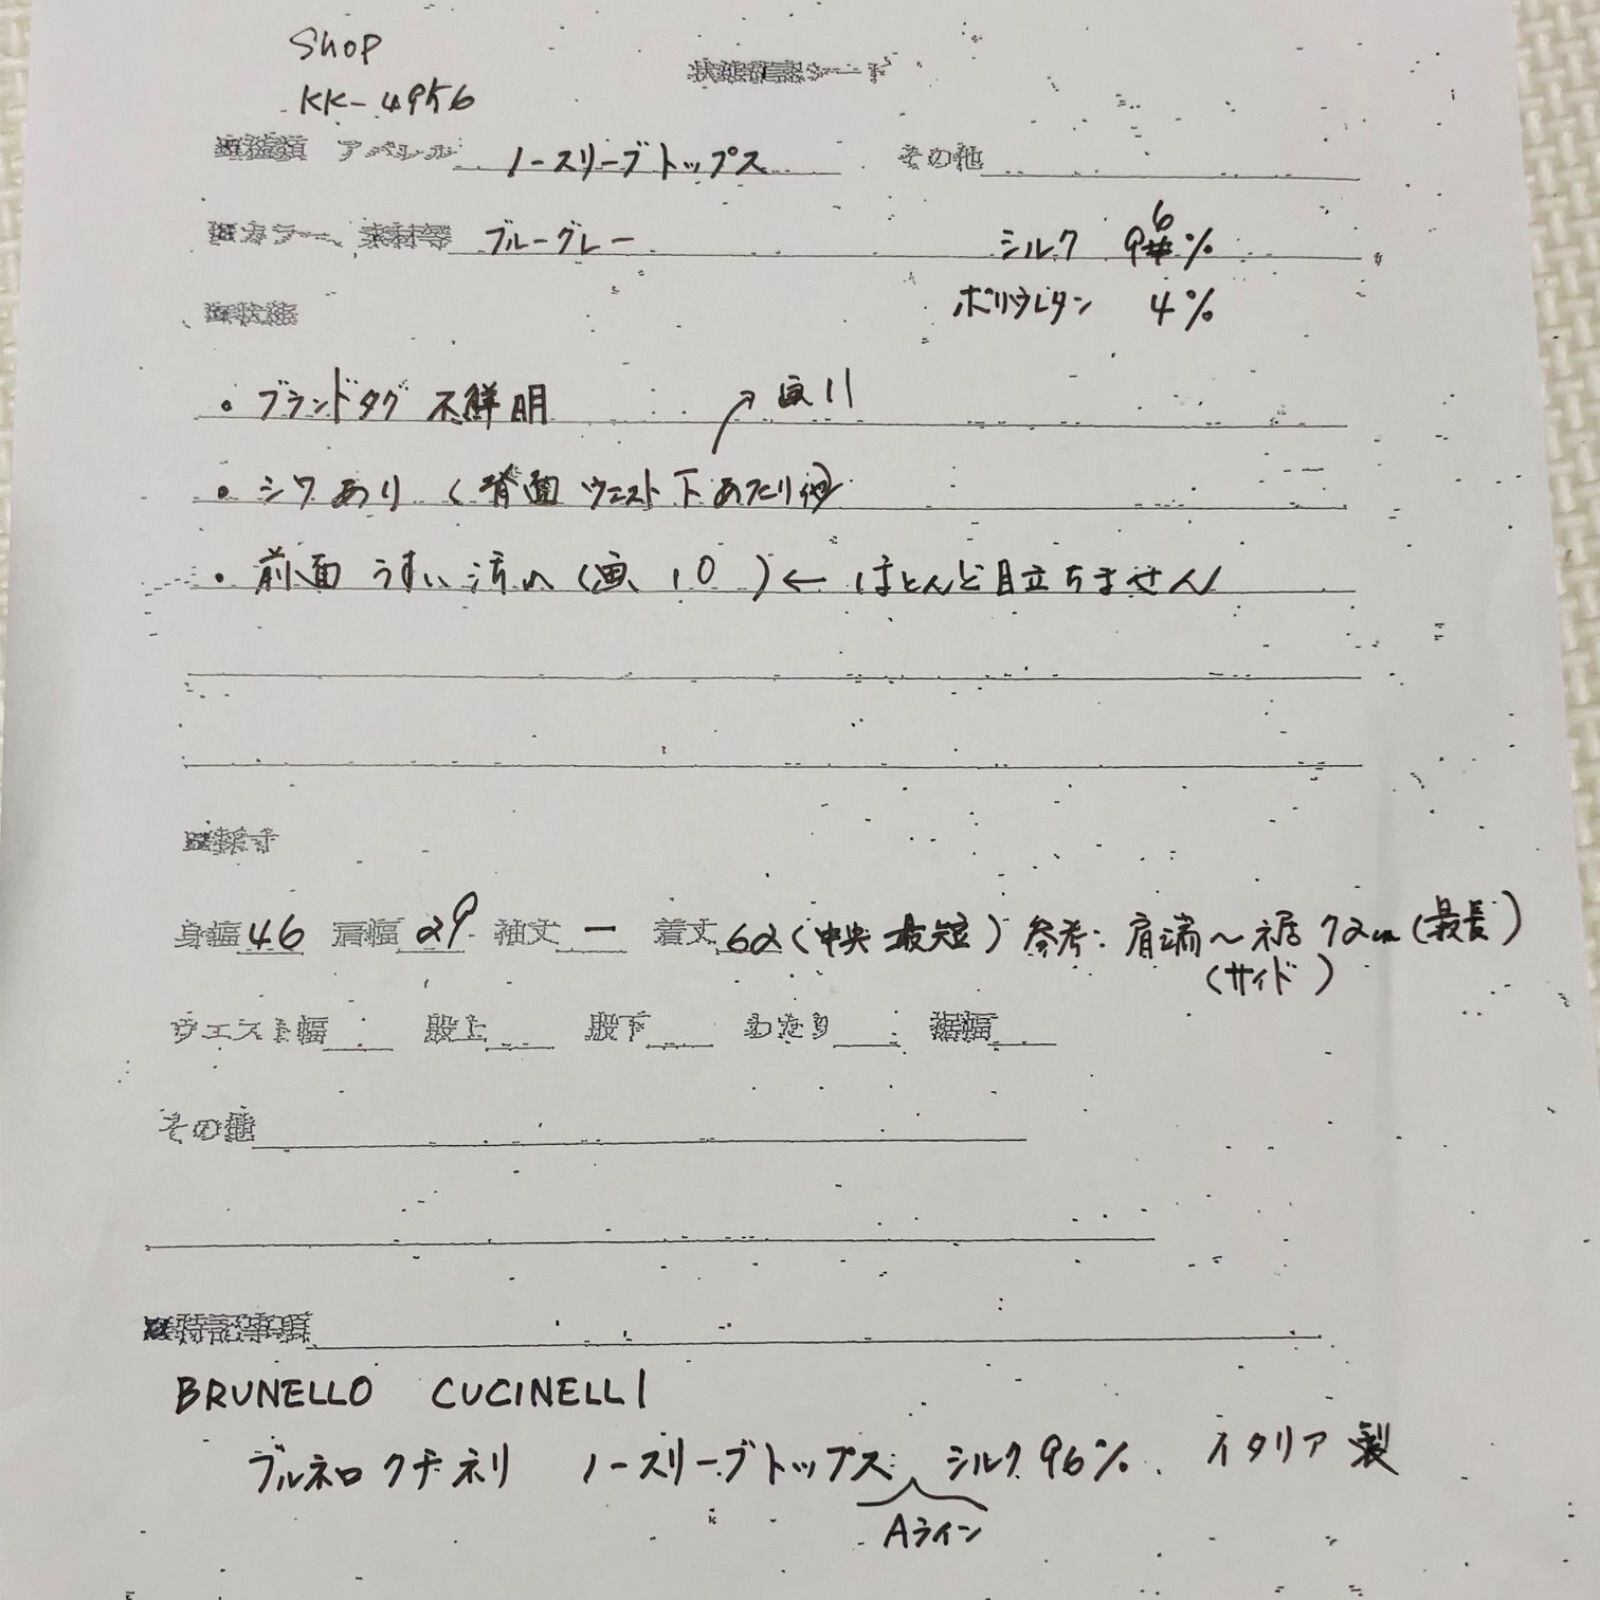 Shop
KK-4956
状態確認シート
■種類 アパレル ノースリーブトップス その他
■カラー、素材等 ブルーグレー シルク 96%
ポリウレタン 4%
■状態
・ブランドタグ 不鮮明
↗ 画11
・シワあり (背面 ウエスト下あたり他)
・前面 うすい汚れ (画10) ← ほとんど目立ちません
■採寸
身幅 46 肩幅 29 袖丈 ー 着丈 62 (中央 最短) 参考: 肩端〜裾 72cm (最長)
(サイド)
ウエスト幅 股上 股下 わたり 裾幅
その他
■特記事項
BRUNELLO CUCINELLI
ブルネロクチネリ ノースリーブトップス シルク96% イタリア製
Aライン